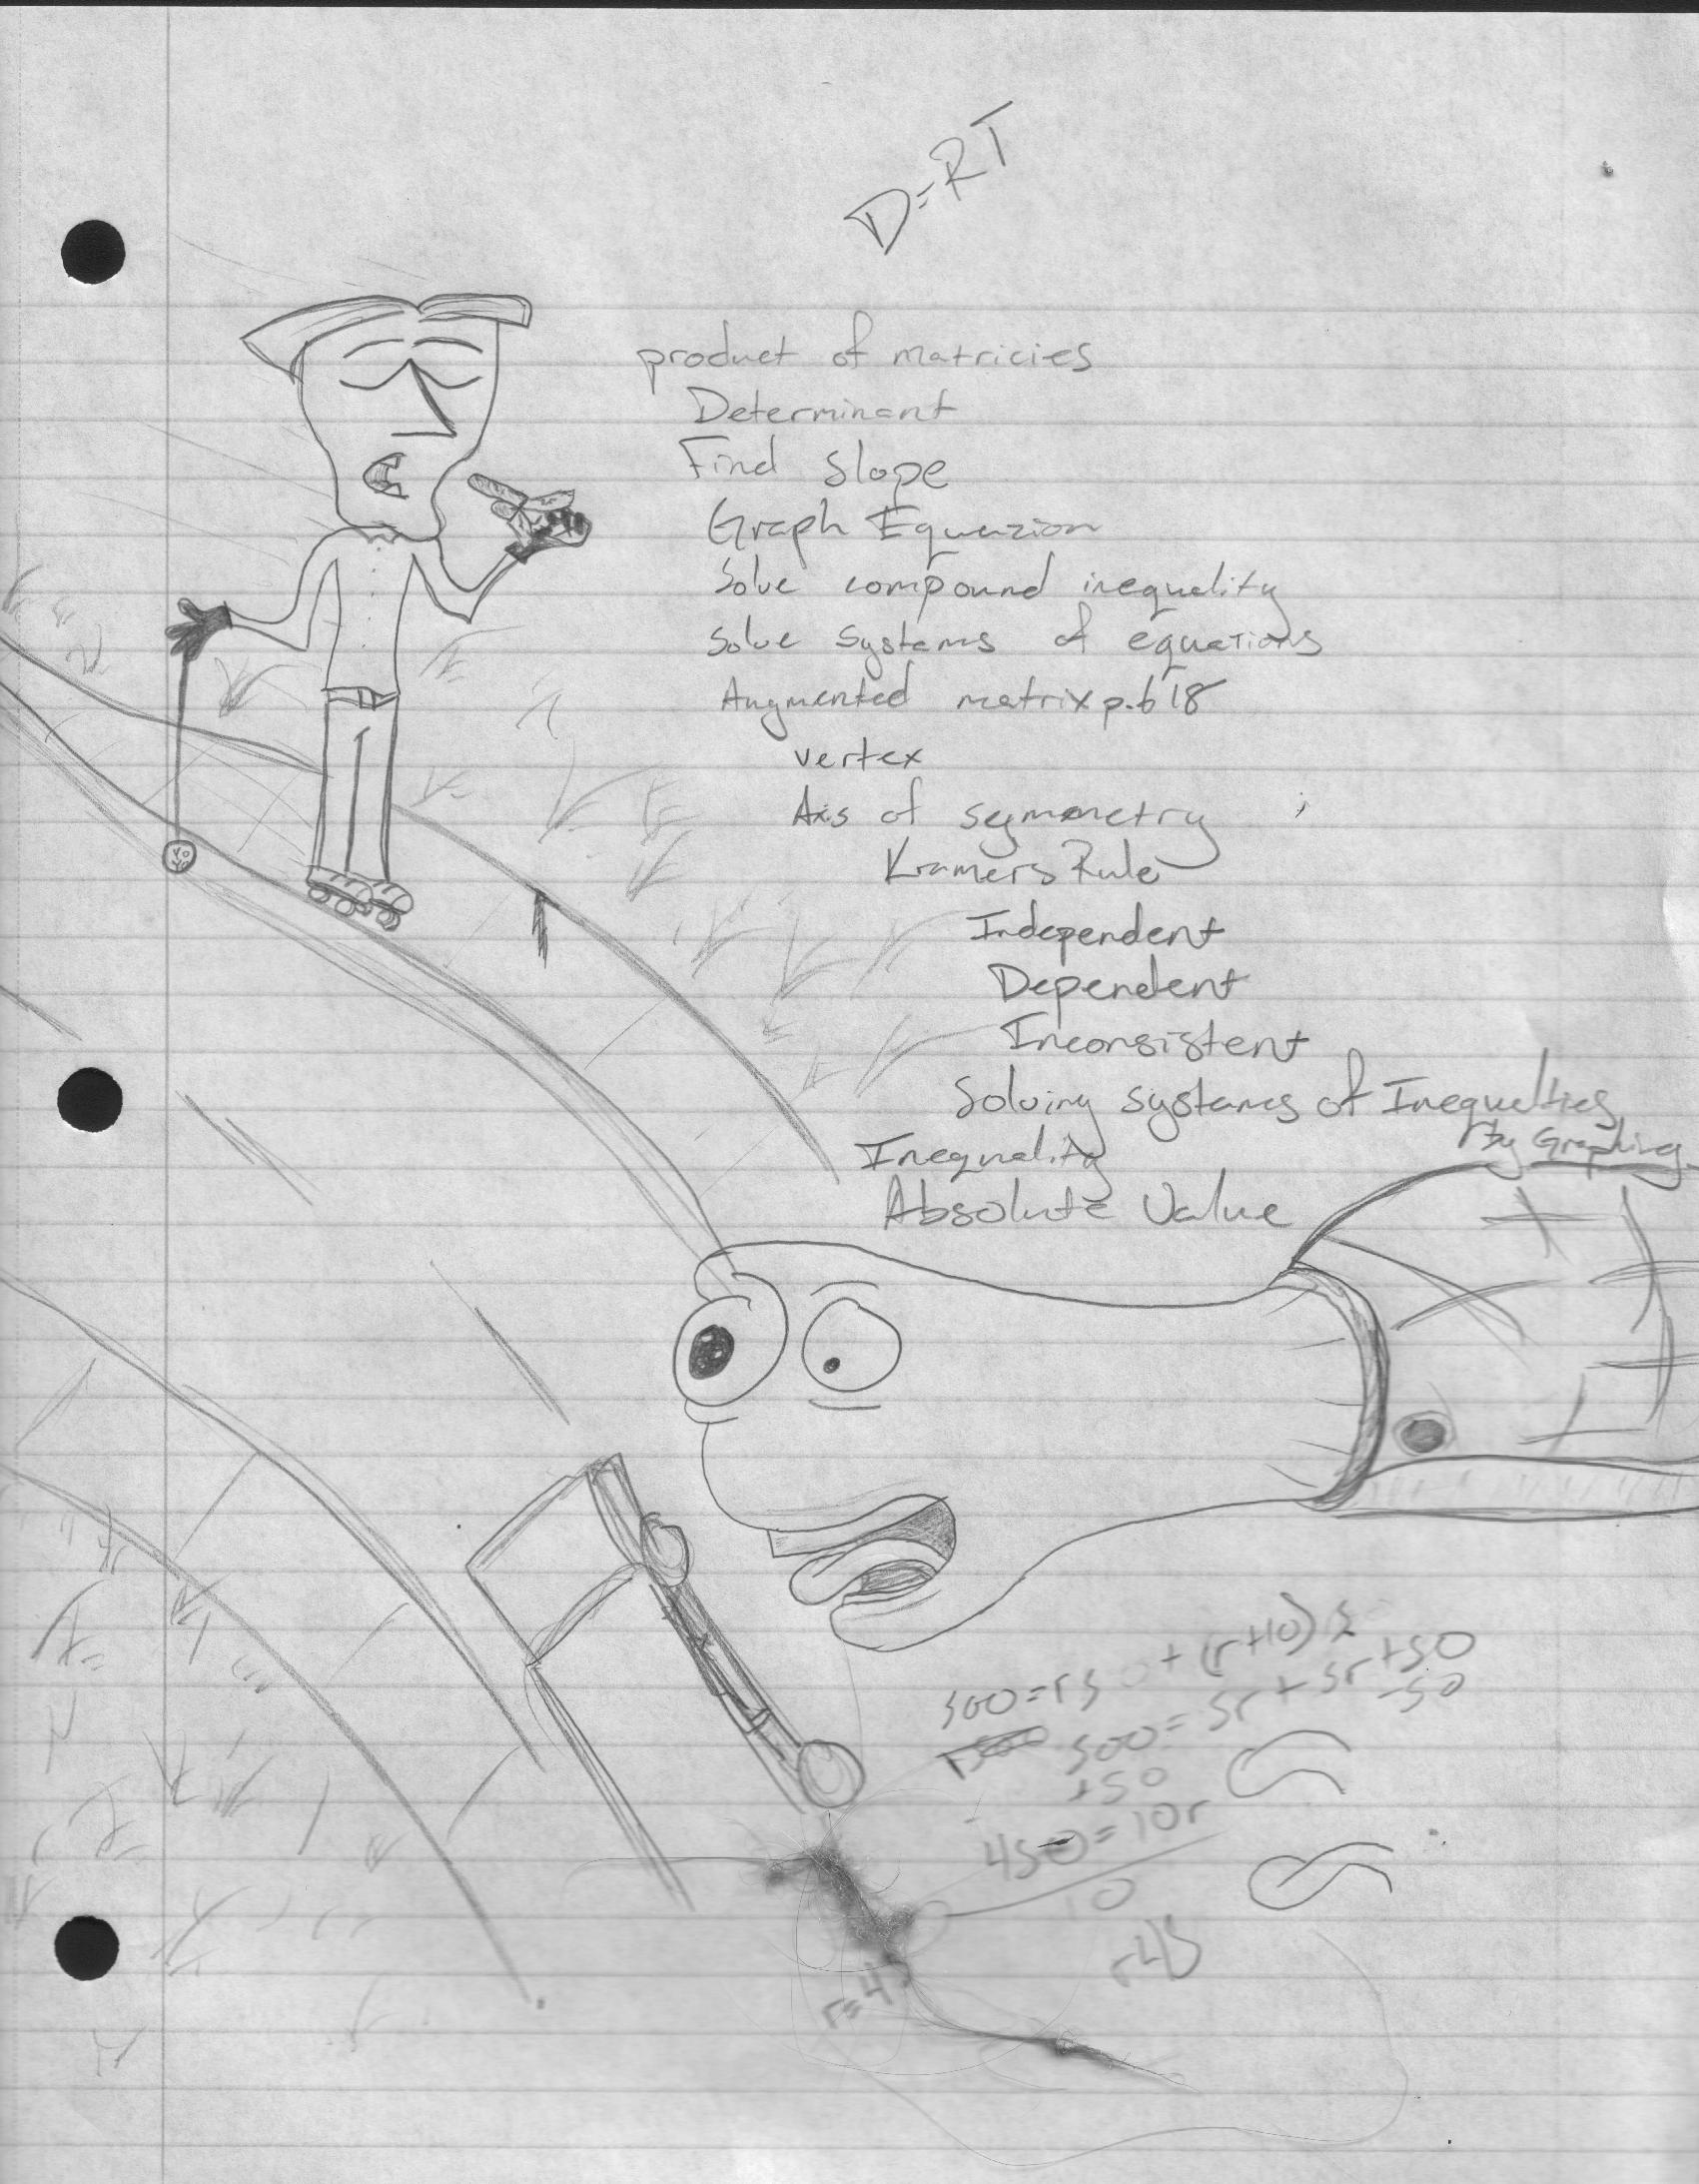 D=RT
product of matricies
Determinant
Find slope
Graph Equazion
Solve compound inequality
Solve systems of equations
Augmented matrix p.618
vertex
Axis of symmetry
Kramers Rule
Independent
Dependent
Inconsistent
Solving systems of Inequalties
by Graphing
Inequality
Absolute Value
YO
YO
500=r5 + (r+10) 5
500= 5r + 5r +50
-50
+50
450=10r
10
r45
r=45